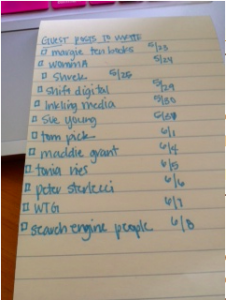 GUEST POSTS TO WRITE
margie 5/23
WOMMA 5/24
Shvek 5/28
Shift digital 5/29
Inkling media
Sue Young
tom pick 6/1
maddie grant 6/4
tania ries 6/5
peter 6/6
WTG 6/7
search engine people 6/8